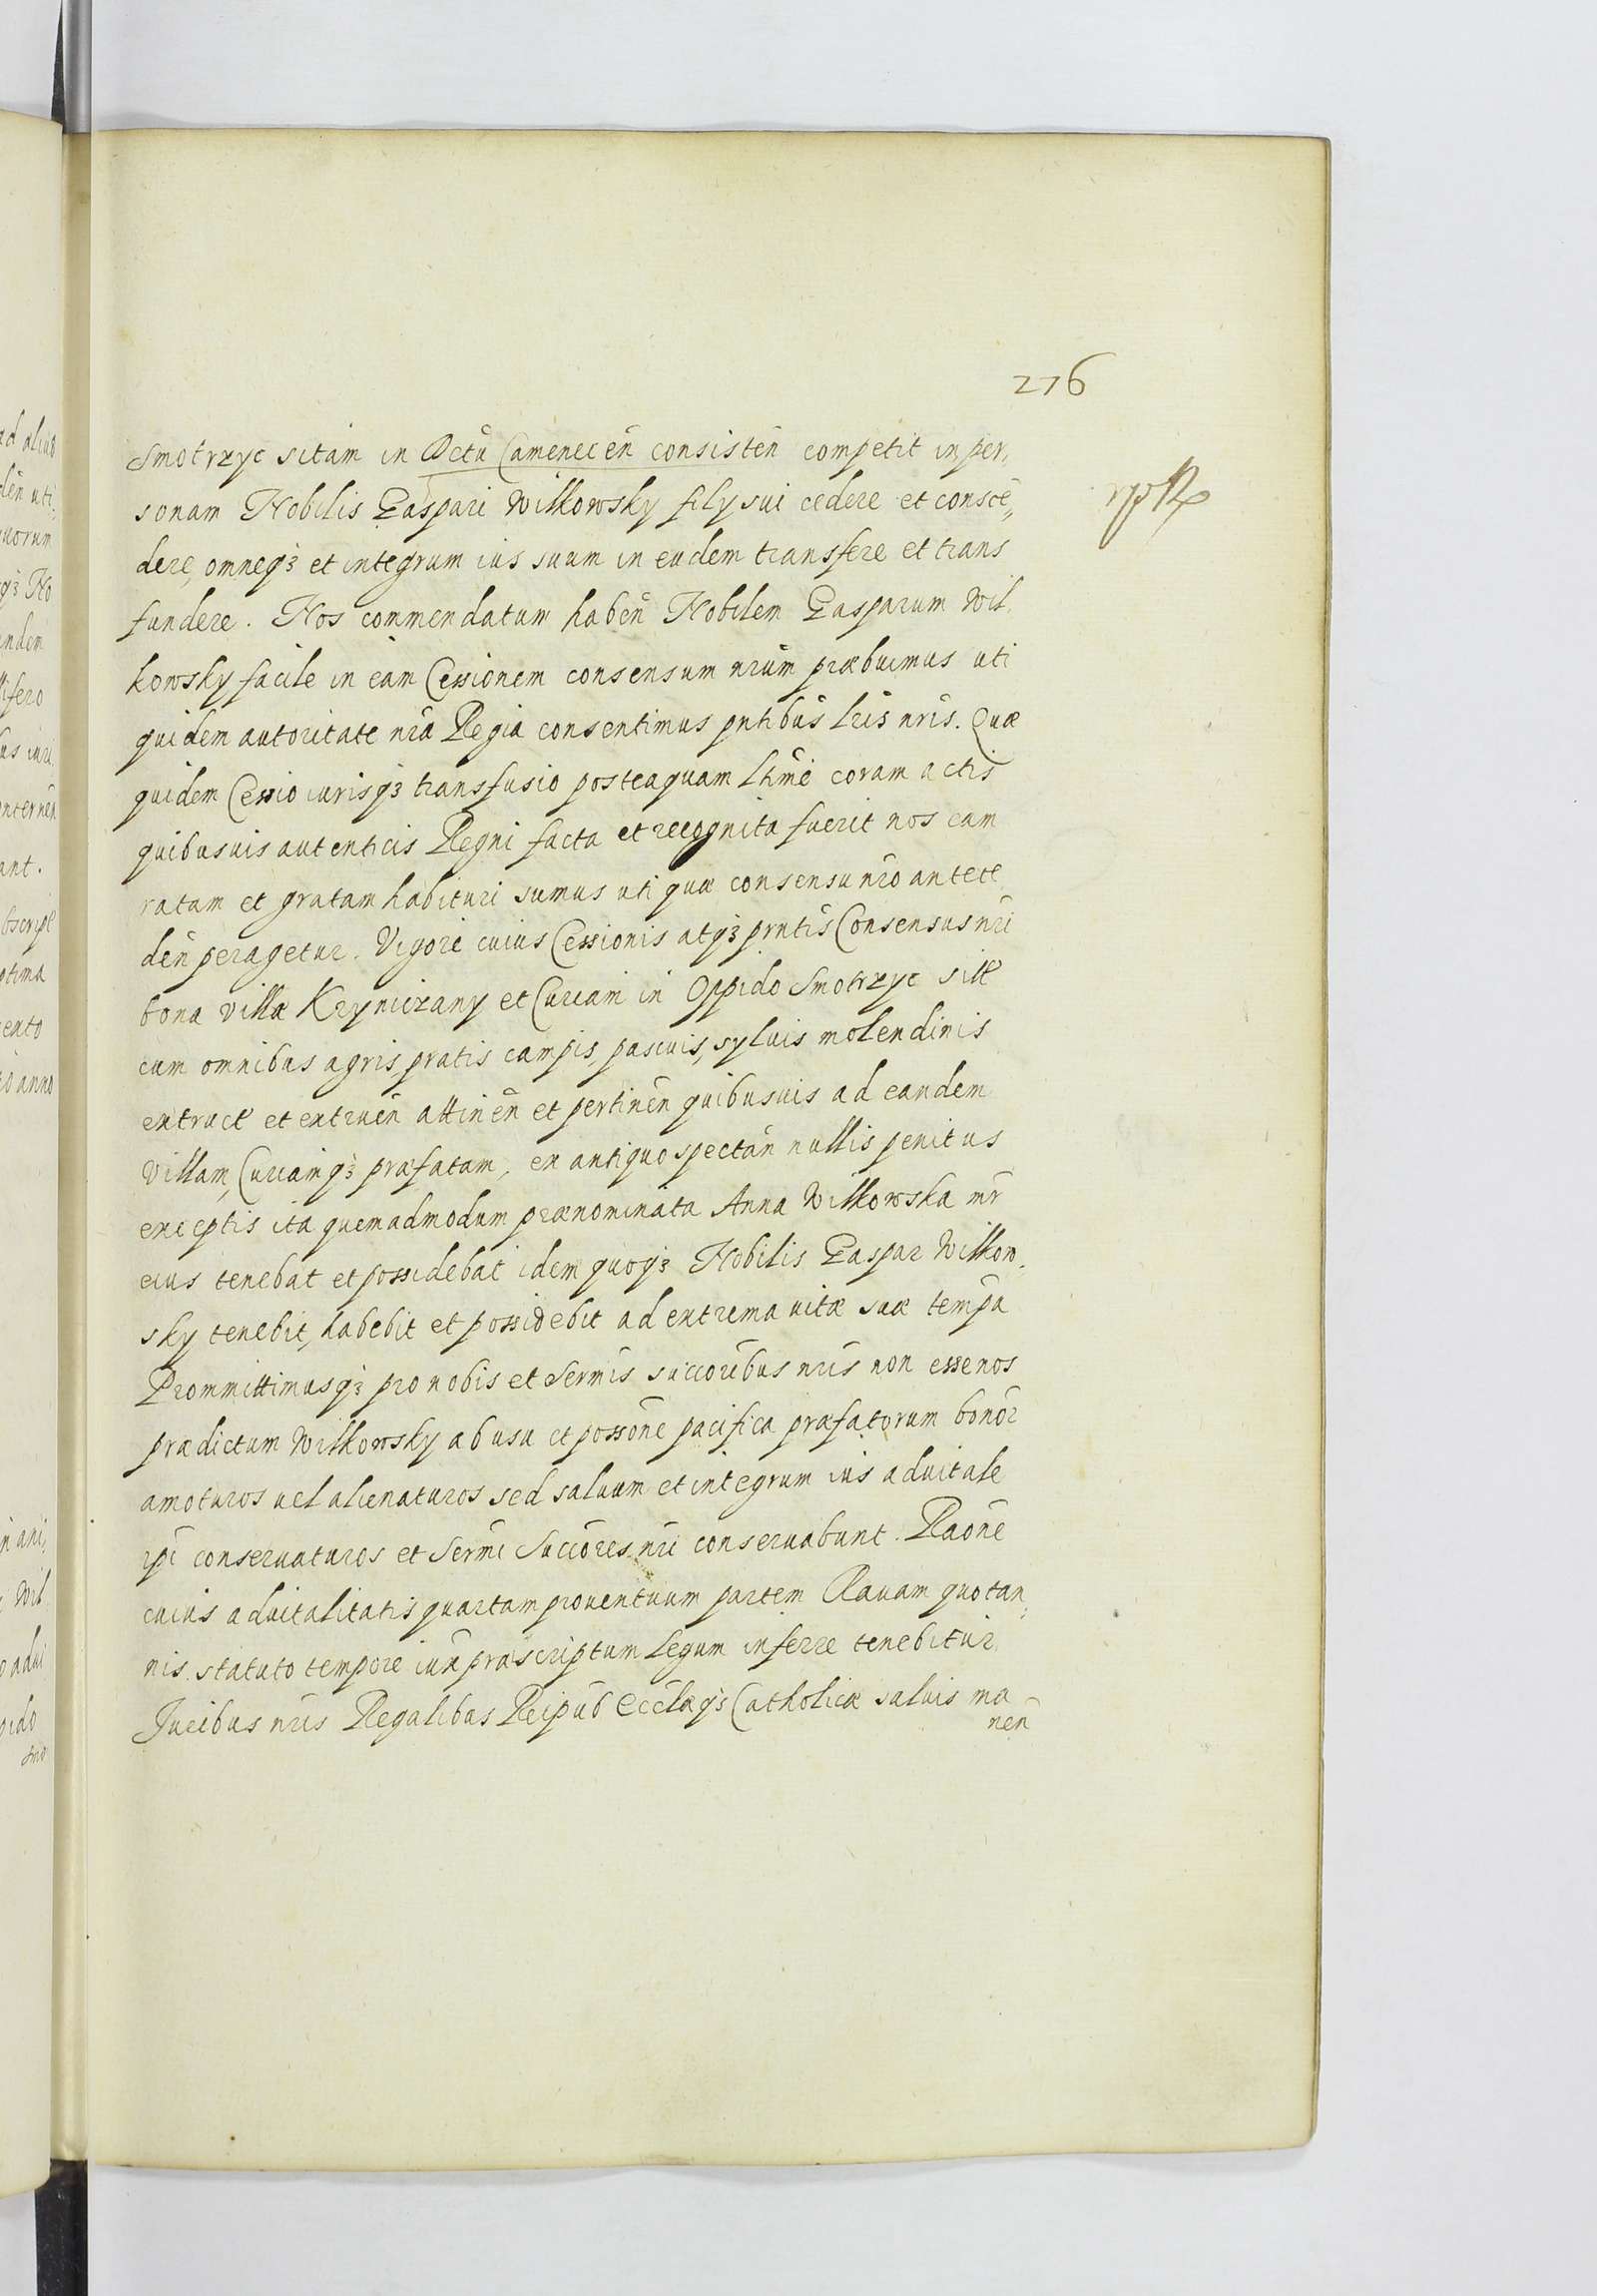 276
Smotrzyc sitam in Dctu Camenecen̄ consisten̄ competit in per,
sonam Nobilis Gaspari Wilkowsky filÿ sui cedere et consce„
dere, omneqꝫ et integrum ius suum in eudem transfere et trans
fundere. Nos commendatum haben̄ Nobilem Gasparum Wil.
kowsky facile in eam Cessionem consensum nr̄um præbuimus uti
quidem autoritate nr̄a Regia consentimus pn̄tibus lr̄is nr̄is. Quæ
quidem Cessio iurisqꝫ transfusio posteaquam lt̄īme coram actis
quibusuis autenticis Regni facta et recognita fuerit nos eam
ratam et gratam habituri sumus uti quæ consensu nr̄o antece
den̄ peragetur. Vigore cuius Cessionis atqꝫ pn̄tis Consensus nr̄i
bona villæ Kryniczany et Curiam in Oppido Smotrzyc sitæ
cum omnibus agris, pratis campis, pascuis, syluis molendinis
extruct et extruen̄ attinen̄ et pertinen̄ quibusuis ad eandem
Villam, Curiamqꝫ præfatam, ex antiquo spectan̄ nullis penitus
exceptis ita quemadmodum prænominata Anna Wilkowska mr̄
eius tenebat et possidebat idem quoqꝫ Nobilis Gaspar Wilkow.
sky tenebit, habebit et possidebit ad extrema uitæ suæ temp̄a
Prommittimusqꝫ pro nobis et Serm̄is succ̄oribus nr̄is non esse nos
prædictum Wilkowsky ab usu et poss̄one pacifica præfatorum bonor̄
amoturos uel alienaturos sed saluum et integrum ius aduitale
ip̄i conseruaturos et Serm̄i Succ̄ores nr̄i conseruabunt. Raōne
cuius aduitalitatis quartam prouentuum partem Rauam quotan,
nis statuto tempore iux̄ præscriptum Legum inferre tenebitur.
Juribus nr̄is Regalibus Reipub̄ Eccl̄æqꝫ Catholicæ saluis ma
nen̄